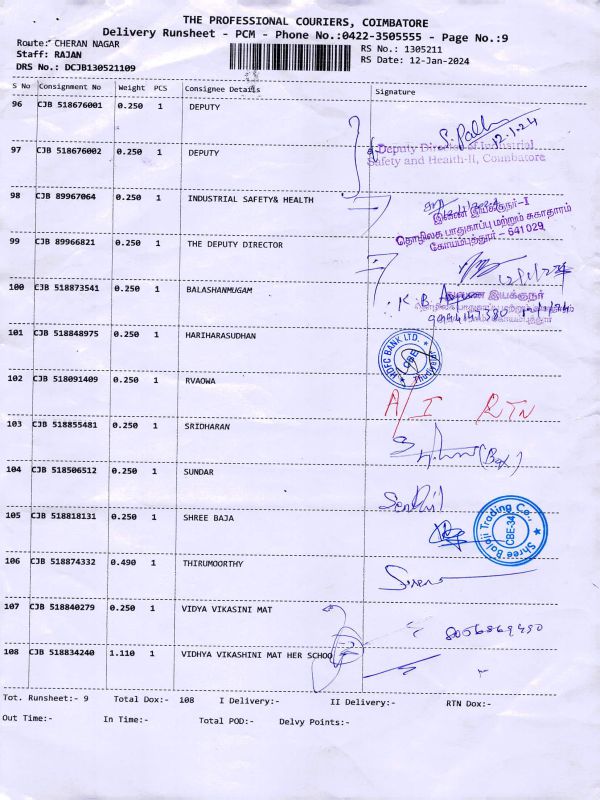 THE PROFESSIONAL COURIERS, COIMBATORE
Delivery Runsheet - PCM - Phone No.:0422-3505555 - Page No.:9
Route: CHERAN NAGAR
RS No.: 1305211
Staff: RAJAN
RS Date: 12-Jan-2024
DRS No.: DCJB130521109
S No Consignment No Weight PCS Consignee Details Signature
96 CJB 518676001 0.250 1 DEPUTY
12.1.24
97 CJB 518676002 0.250 1 DEPUTY
Deputy Director of Industrial
Safety and Health-II, Coimbatore
98 CJB 89967064 0.250 1 INDUSTRIAL SAFETY& HEALTH
இணை இயக்குநர்-I
தொழிலக பாதுகாப்பு மற்றும் சுகாதாரம்
கோயம்புத்தூர் - 641 029
99 CJB 89966821 0.250 1 THE DEPUTY DIRECTOR
12/1/24
100 CJB 518873541 0.250 1 BALASHANMUGAM
K. B.
இயக்குநர்
101 CJB 518848975 0.250 1 HARIHARASUDHAN
HDFC BANK LTD.
CBE
102 CJB 518091409 0.250 1 RVAOWA
A/I RTN
103 CJB 518855481 0.250 1 SRIDHARAN
104 CJB 518506512 0.250 1 SUNDAR
Sendhil
105 CJB 518818131 0.250 1 SHREE BAJA
Shree Balaji Trading Co.,
CBE-34
106 CJB 518874332 0.490 1 THIRUMOORTHY
107 CJB 518840279 0.250 1 VIDYA VIKASINI MAT
8056869490
108 CJB 518834240 1.110 1 VIDHYA VIKASHINI MAT HER SCHOO
Tot. Runsheet:- 9 Total Dox:- 108 I Delivery:- II Delivery:- RTN Dox:-
Out Time:- In Time:- Total POD:- Delvy Points:-